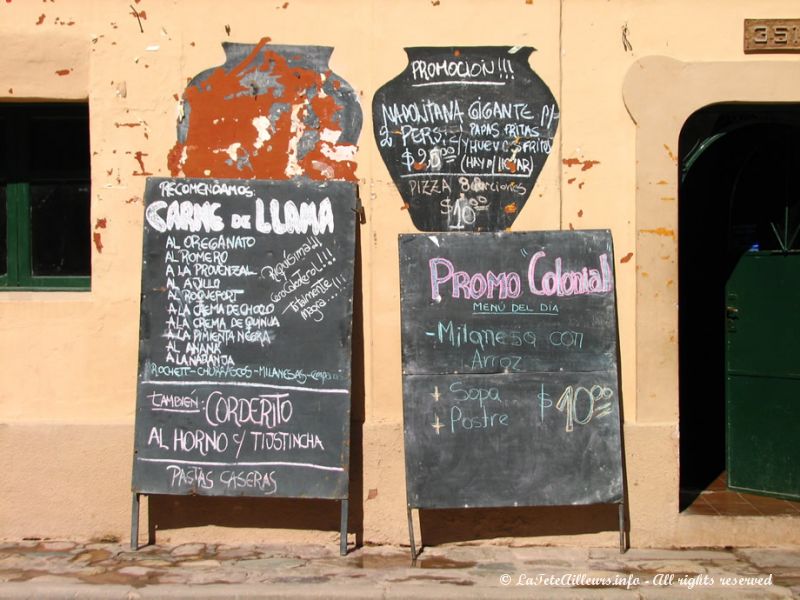 RECOMENDAMOS:
CARNE DE LLAMA
AL OREGANATO
AL ROMERO
A LA PROVENZAL
AL AJILLO
AL ROQUEFORT
A LA CREMA DE CHOCLO
A LA CREMA DE QUINUA
A LA PIMIENTA NEGRA
AL ANANÁ
A LA NARANJA
Riquísima!!!
Cero Colesterol!!!
Totalmente
magra...
BROCHETT-CHURRASCOS-MILANESAS-
TAMBIÉN: CORDERITO
AL HORNO Y TIJSTINCHA
PASTAS CASERAS
PROMOCION!!!
NAPOLITANA GIGANTE P/
2 PERS. PAPAS FRITAS
Y HUEVOS FRITOS
(HAY P/LLEVAR)
PIZZA 8 porciones
$10.00
PROMO "Colonial"
MENÚ DEL DÍA
-Milanesa con
Arroz
+ Sopa
+ Postre
$10.00
351
© LaTeteAilleurs.info - All rights reserved